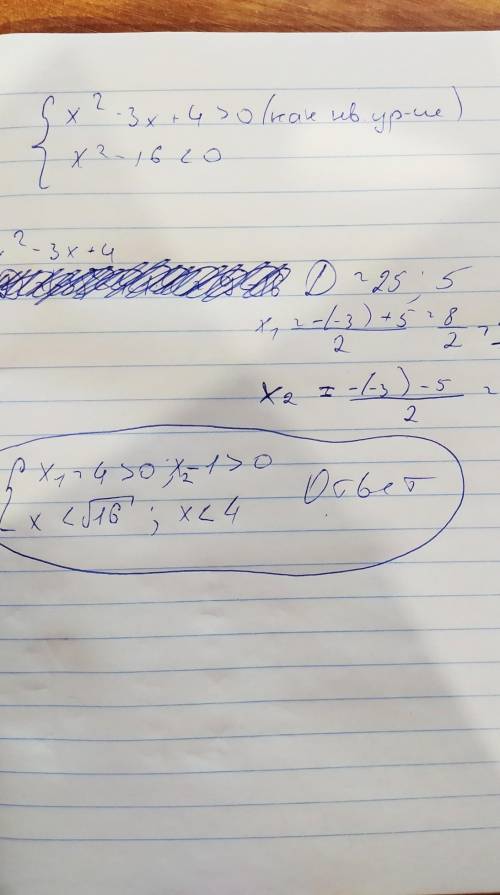 x² - 3x + 4 > 0 (как кв ур-ие)
x² - 16 < 0
² - 3x + 4
D = 25 ; 5
x₁ = -(-3) + 5 / 2 = 8 / 2 =
x₂ = -(-3) - 5 / 2 =
x₁ = 4 > 0 ; x₂ - 1 > 0
x < √16 ; x < 4
Ответ